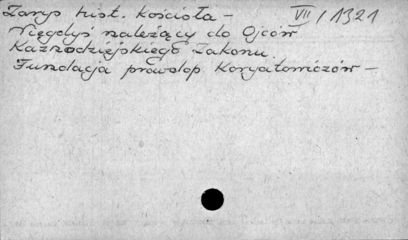 Zarys hist. kościoła – VII/1321
Niegdyś należący do Ojców
Kaznodziejskiego Zakonu.
Fundacja prawdop Koryatowiczów –